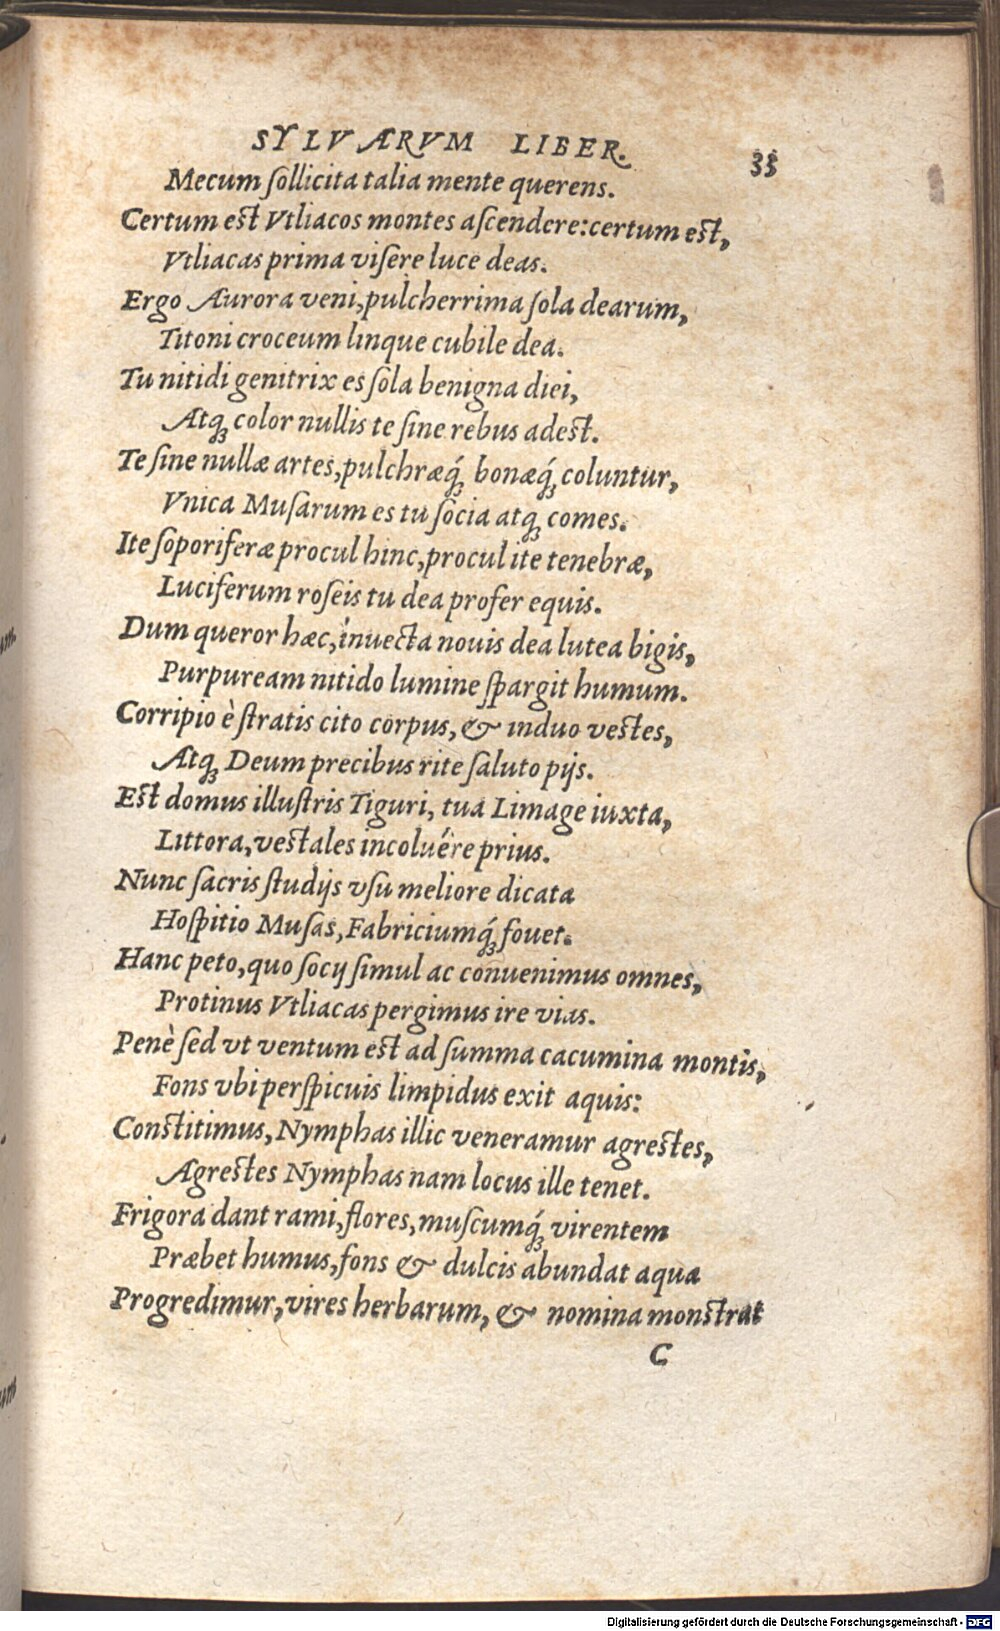 SYLVARVM LIBER. 35
Mecum ſollicita talia mente querens.
Certum est Vtliacos montes aſcendere: certum est,
Vtliacas prima viſere luce deas.
Ergo Aurora veni, pulcherrima ſola dearum,
Titoni croceum linque cubile dea.
Tu nitidi genitrix es ſola benigna diei,
Atq; color nullis te ſine rebus adest.
Te ſine nullæ artes, pulchræq́; bonæq́; coluntur,
Vnica Muſarum es tu ſocia atq; comes.
Ite ſoporiferæ procul hinc, procul ite tenebræ,
Luciferum roſeis tu dea profer equis.
Dum queror hæc, inuecta nouis dea lutea bigis,
Purpuream nitido lumine ſpargit humum.
Corripio è ſtratis cito corpus, & induo vestes,
Atq; Deum precibus rite ſaluto pijs.
Est domus illuſtris Tiguri, tua Limage iuxta,
Littora, vestales incoluére prius.
Nunc ſacris ſtudijs vſu meliore dicata
Hoſpitio Muſas, Fabriciumq́; fouet.
Hanc peto, quo ſocij ſimul ac conuenimus omnes,
Protinus Vtliacas pergimus ire vias.
Penè ſed vt ventum est ad ſumma cacumina montis,
Fons vbi perſpicuis limpidus exit aquis:
Constitimus, Nymphas illic veneramur agrestes,
Agrestes Nymphas nam locus ille tenet.
Frigora dant rami, flores, muſcumq́; virentem
Præbet humus, fons & dulcis abundat aqua
Progredimur, vires herbarum, & nomina monstrat
C
Digitalisierung gefördert durch die Deutsche Forschungsgemeinschaft - DFG